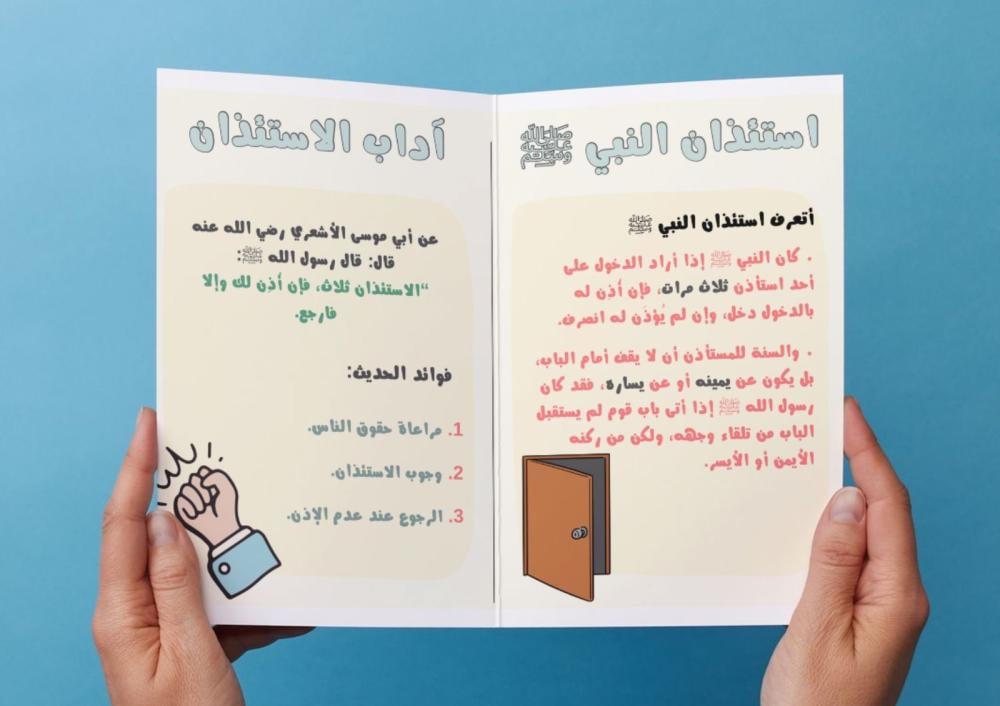 استئذان النبي ﷺ
أتعرف استئذان النبي ﷺ
. كان النبي ﷺ إذا أراد الدخول على
أحد استأذن ثلاث مرات، فإن أُذِن له
بالدخول دخل، وإن لم يُؤذَن له انصرف.
. والسنة للمستأذن أن لا يقف أمام الباب،
بل يكون عن يمينه أو عن يسارة، فقد كان
رسول الله ﷺ إذا أتى باب قوم لم يستقبل
الباب من تلقاء وجهه، ولكن من ركنه
الأيمن أو الأيسر.
آداب الاستئذان
عن أبي موسى الأشعري رضي الله عنه
قال: قال رسول الله ﷺ:
"الاستئذان ثلاث، فإن أُذِن لك وإلا
فارجع.
فوائد الحديث:
1. مراعاة حقوق الناس.
2. وجوب الاستئذان.
3. الرجوع عند عدم الإذن.